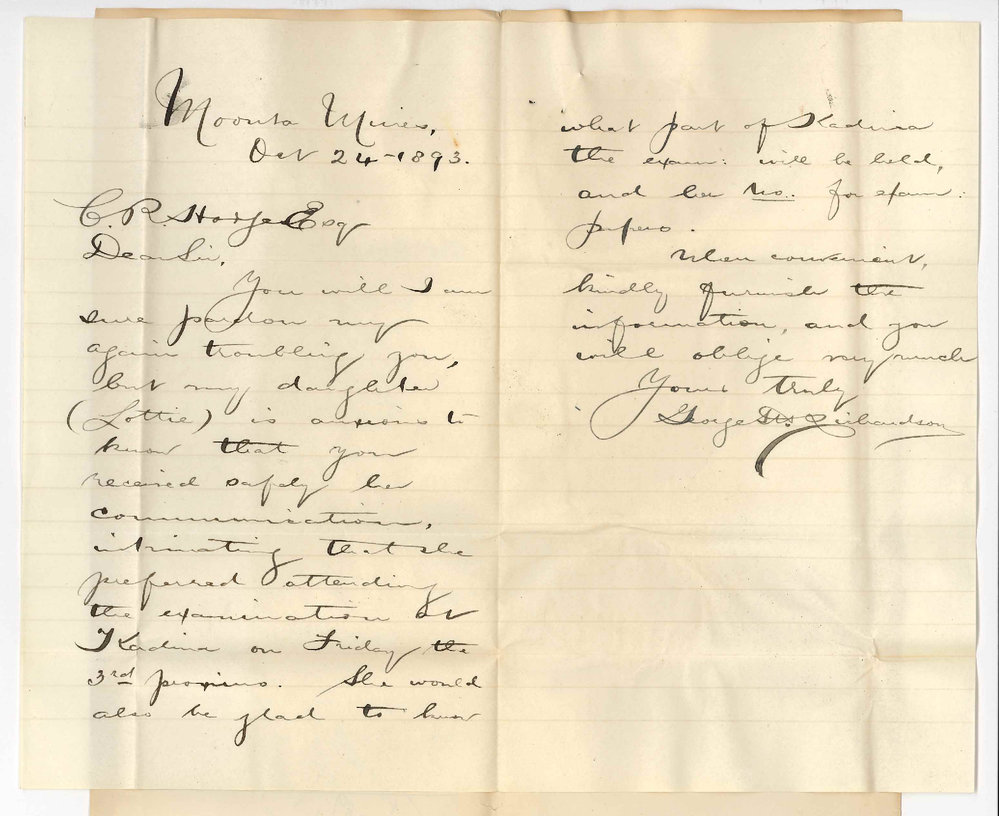 Moonta Mines,
Oct 24-1893.
C. R. Hodge Esq
Dear Sir,
You will I am
sure pardon my
again troubling you,
but my daughter
(Lottie) is anxious to
know that you
received safely her
communication,
intimating that she
preferred attending
the examination at
Kadina on Friday the
3rd proximo. She would
also be glad to know
what part of Kadina
the exam: will be held,
and her No. for exam:
papers.
When convenient,
kindly furnish the
information, and you
will oblige very much
Yours truly
George Richardson